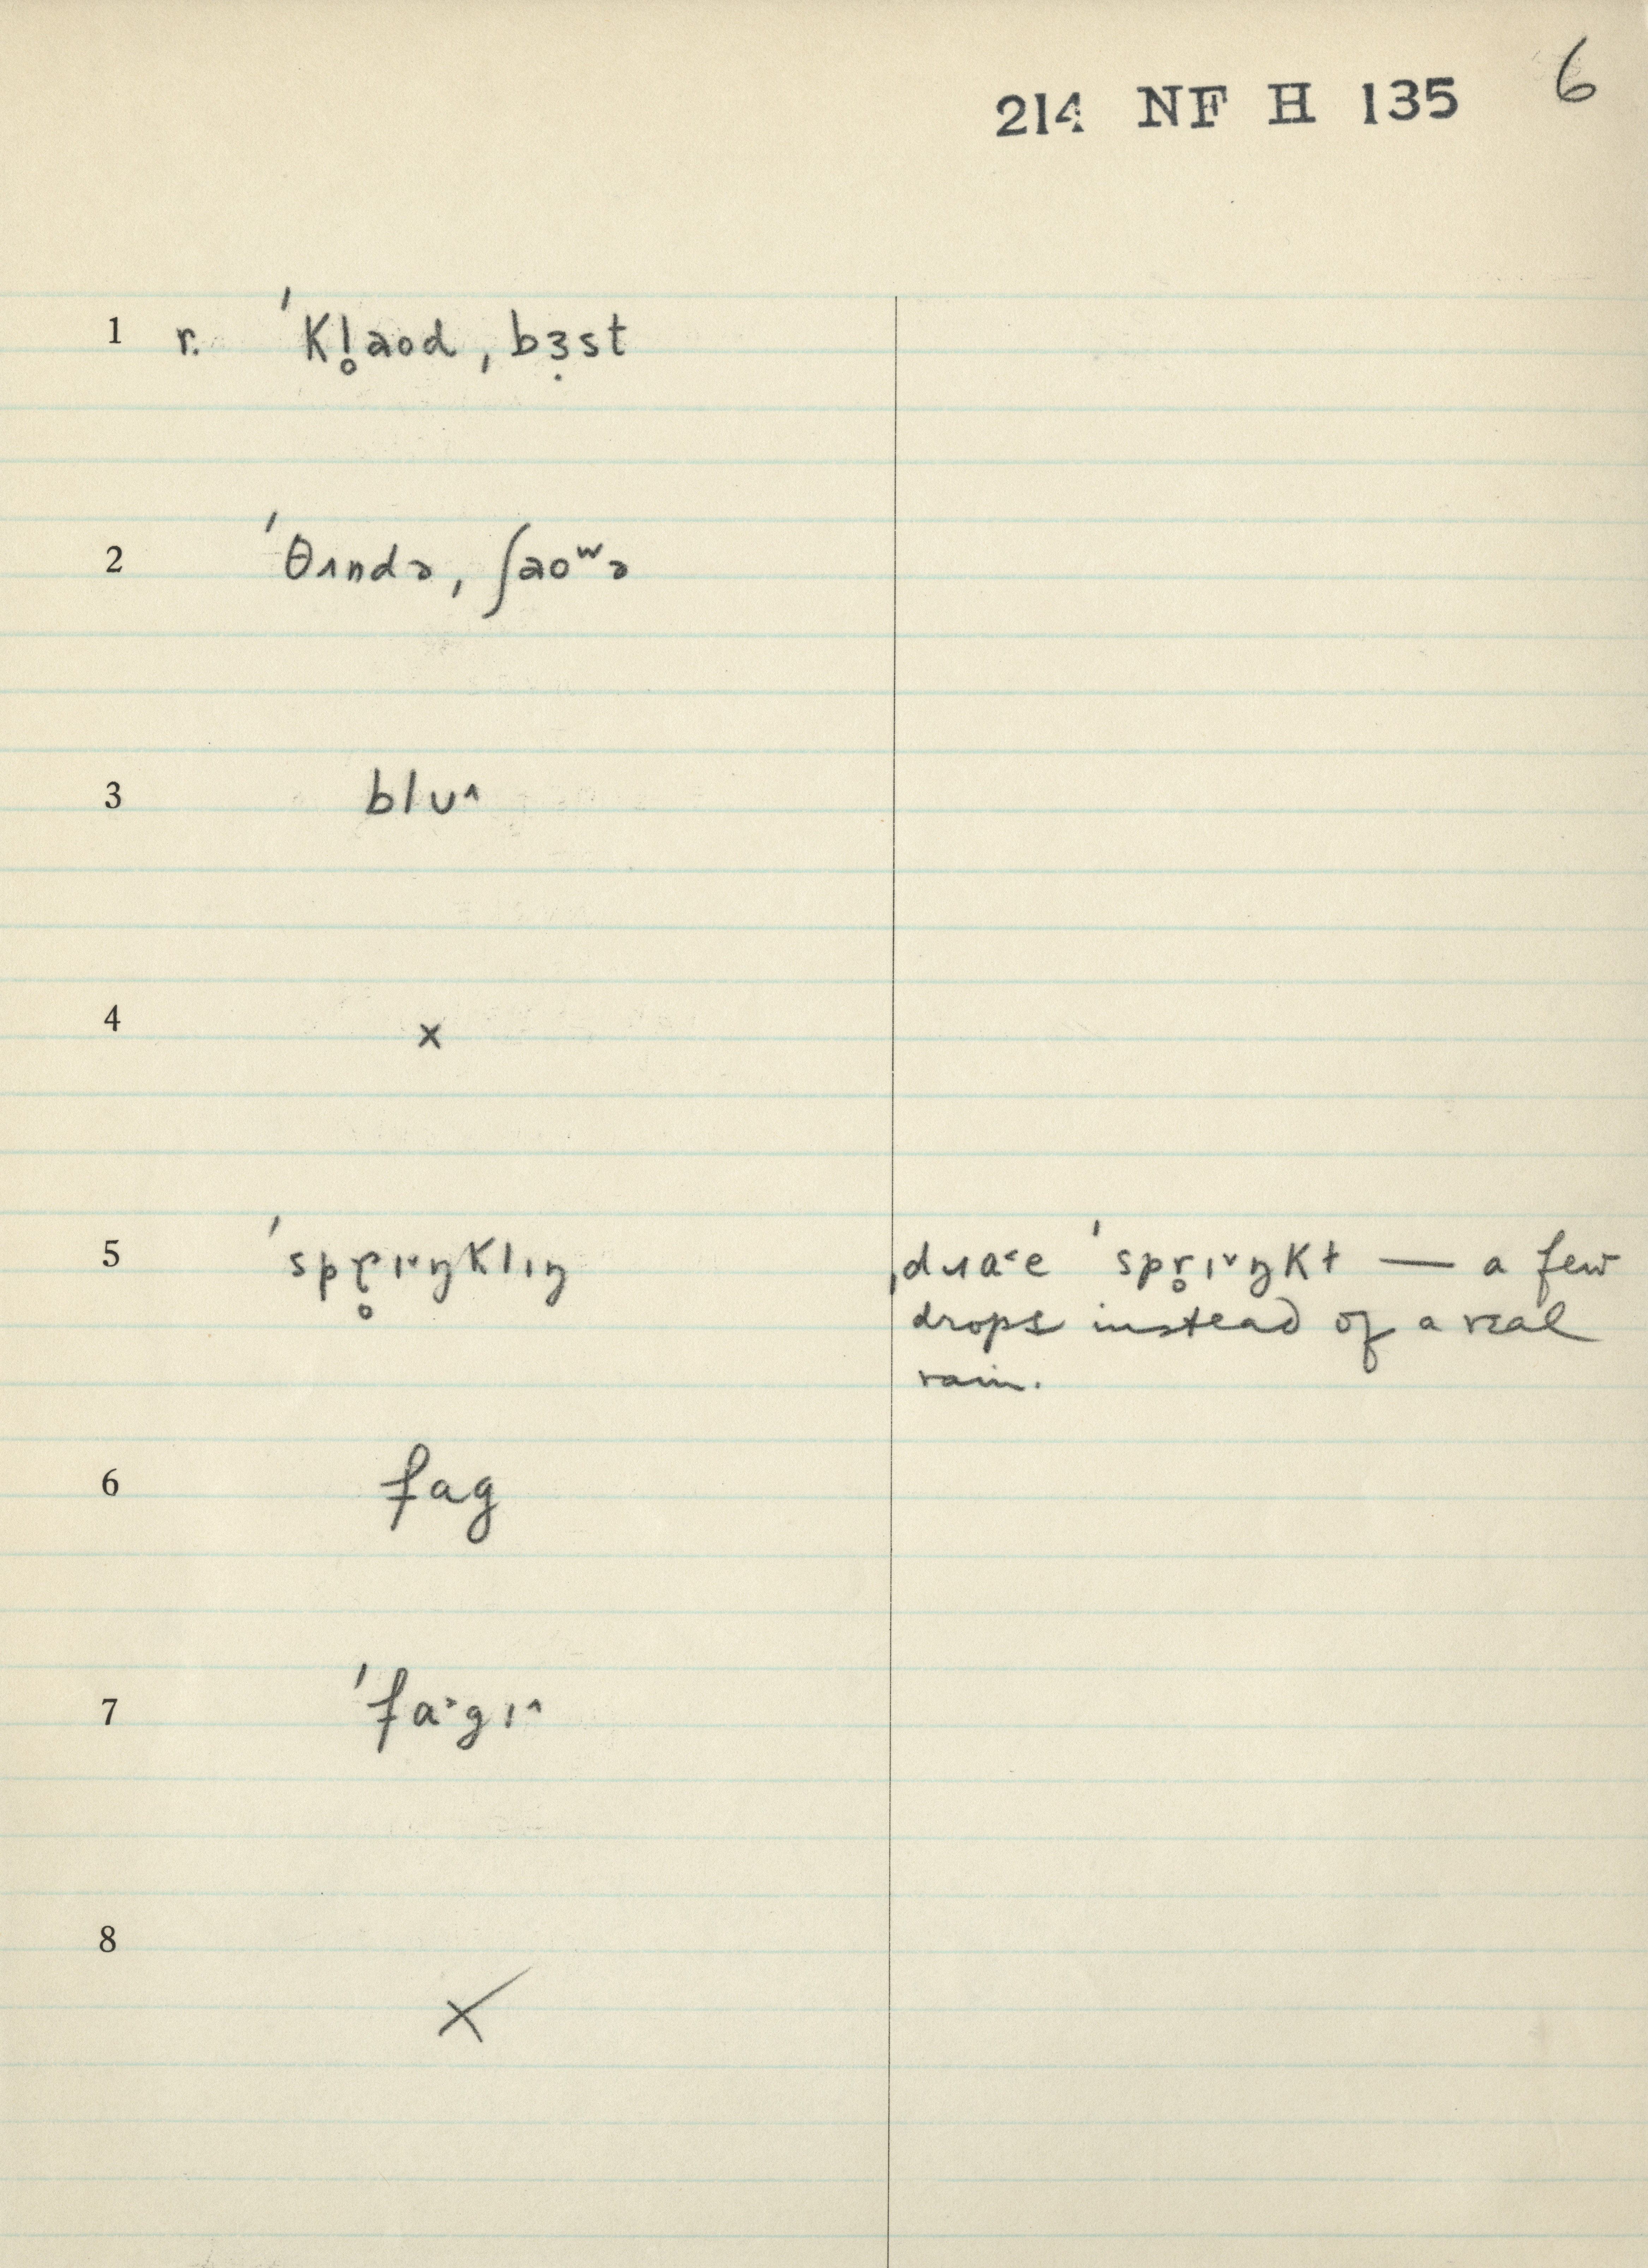 214 NF H 135 6
1 r. ˈkl̥aʊd ˌbɜ̣st
2 ˈθʌndə ˌʃaoʷə
3 blu^
4 x
5 ˈspɾ̥ɪ˅ŋklɪŋ
ˌdɹɑ˂e ˈspr̥ɪ˅ŋkt — a few
drops instead of a real
rain.
6 fag
7 ˈfa˃gɪ^
8 x